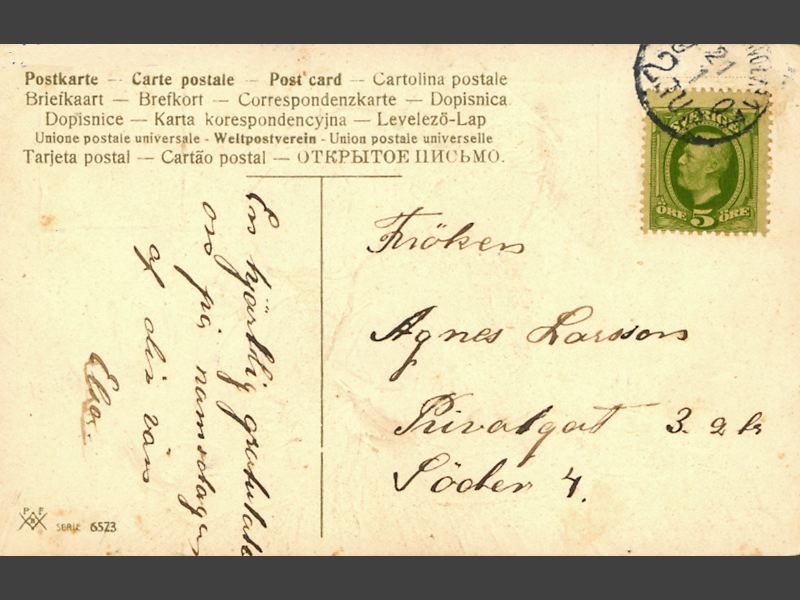 Postkarte — Carte postale — Post card — Cartolina postale
Briefkaart — Brefkort — Correspondenzkarte — Dopisnica
Dopisnice — Karta korespondencyjna — Levelező-Lap
Unione postale universale - Weltpostverein - Union postale universelle
Tarjeta postal — Cartão postal — ОТКРЫТОЕ ПИСЬМО.
SVERIGE
ÖRE 5 ÖRE
21
En hjärtlig gratulati
on på namsdagen
af din vän
Elsa.
Fröken
Agnes Larsson
Privatgat 3. 2 tr
Söder 4.
P F
B
SERIE 6523